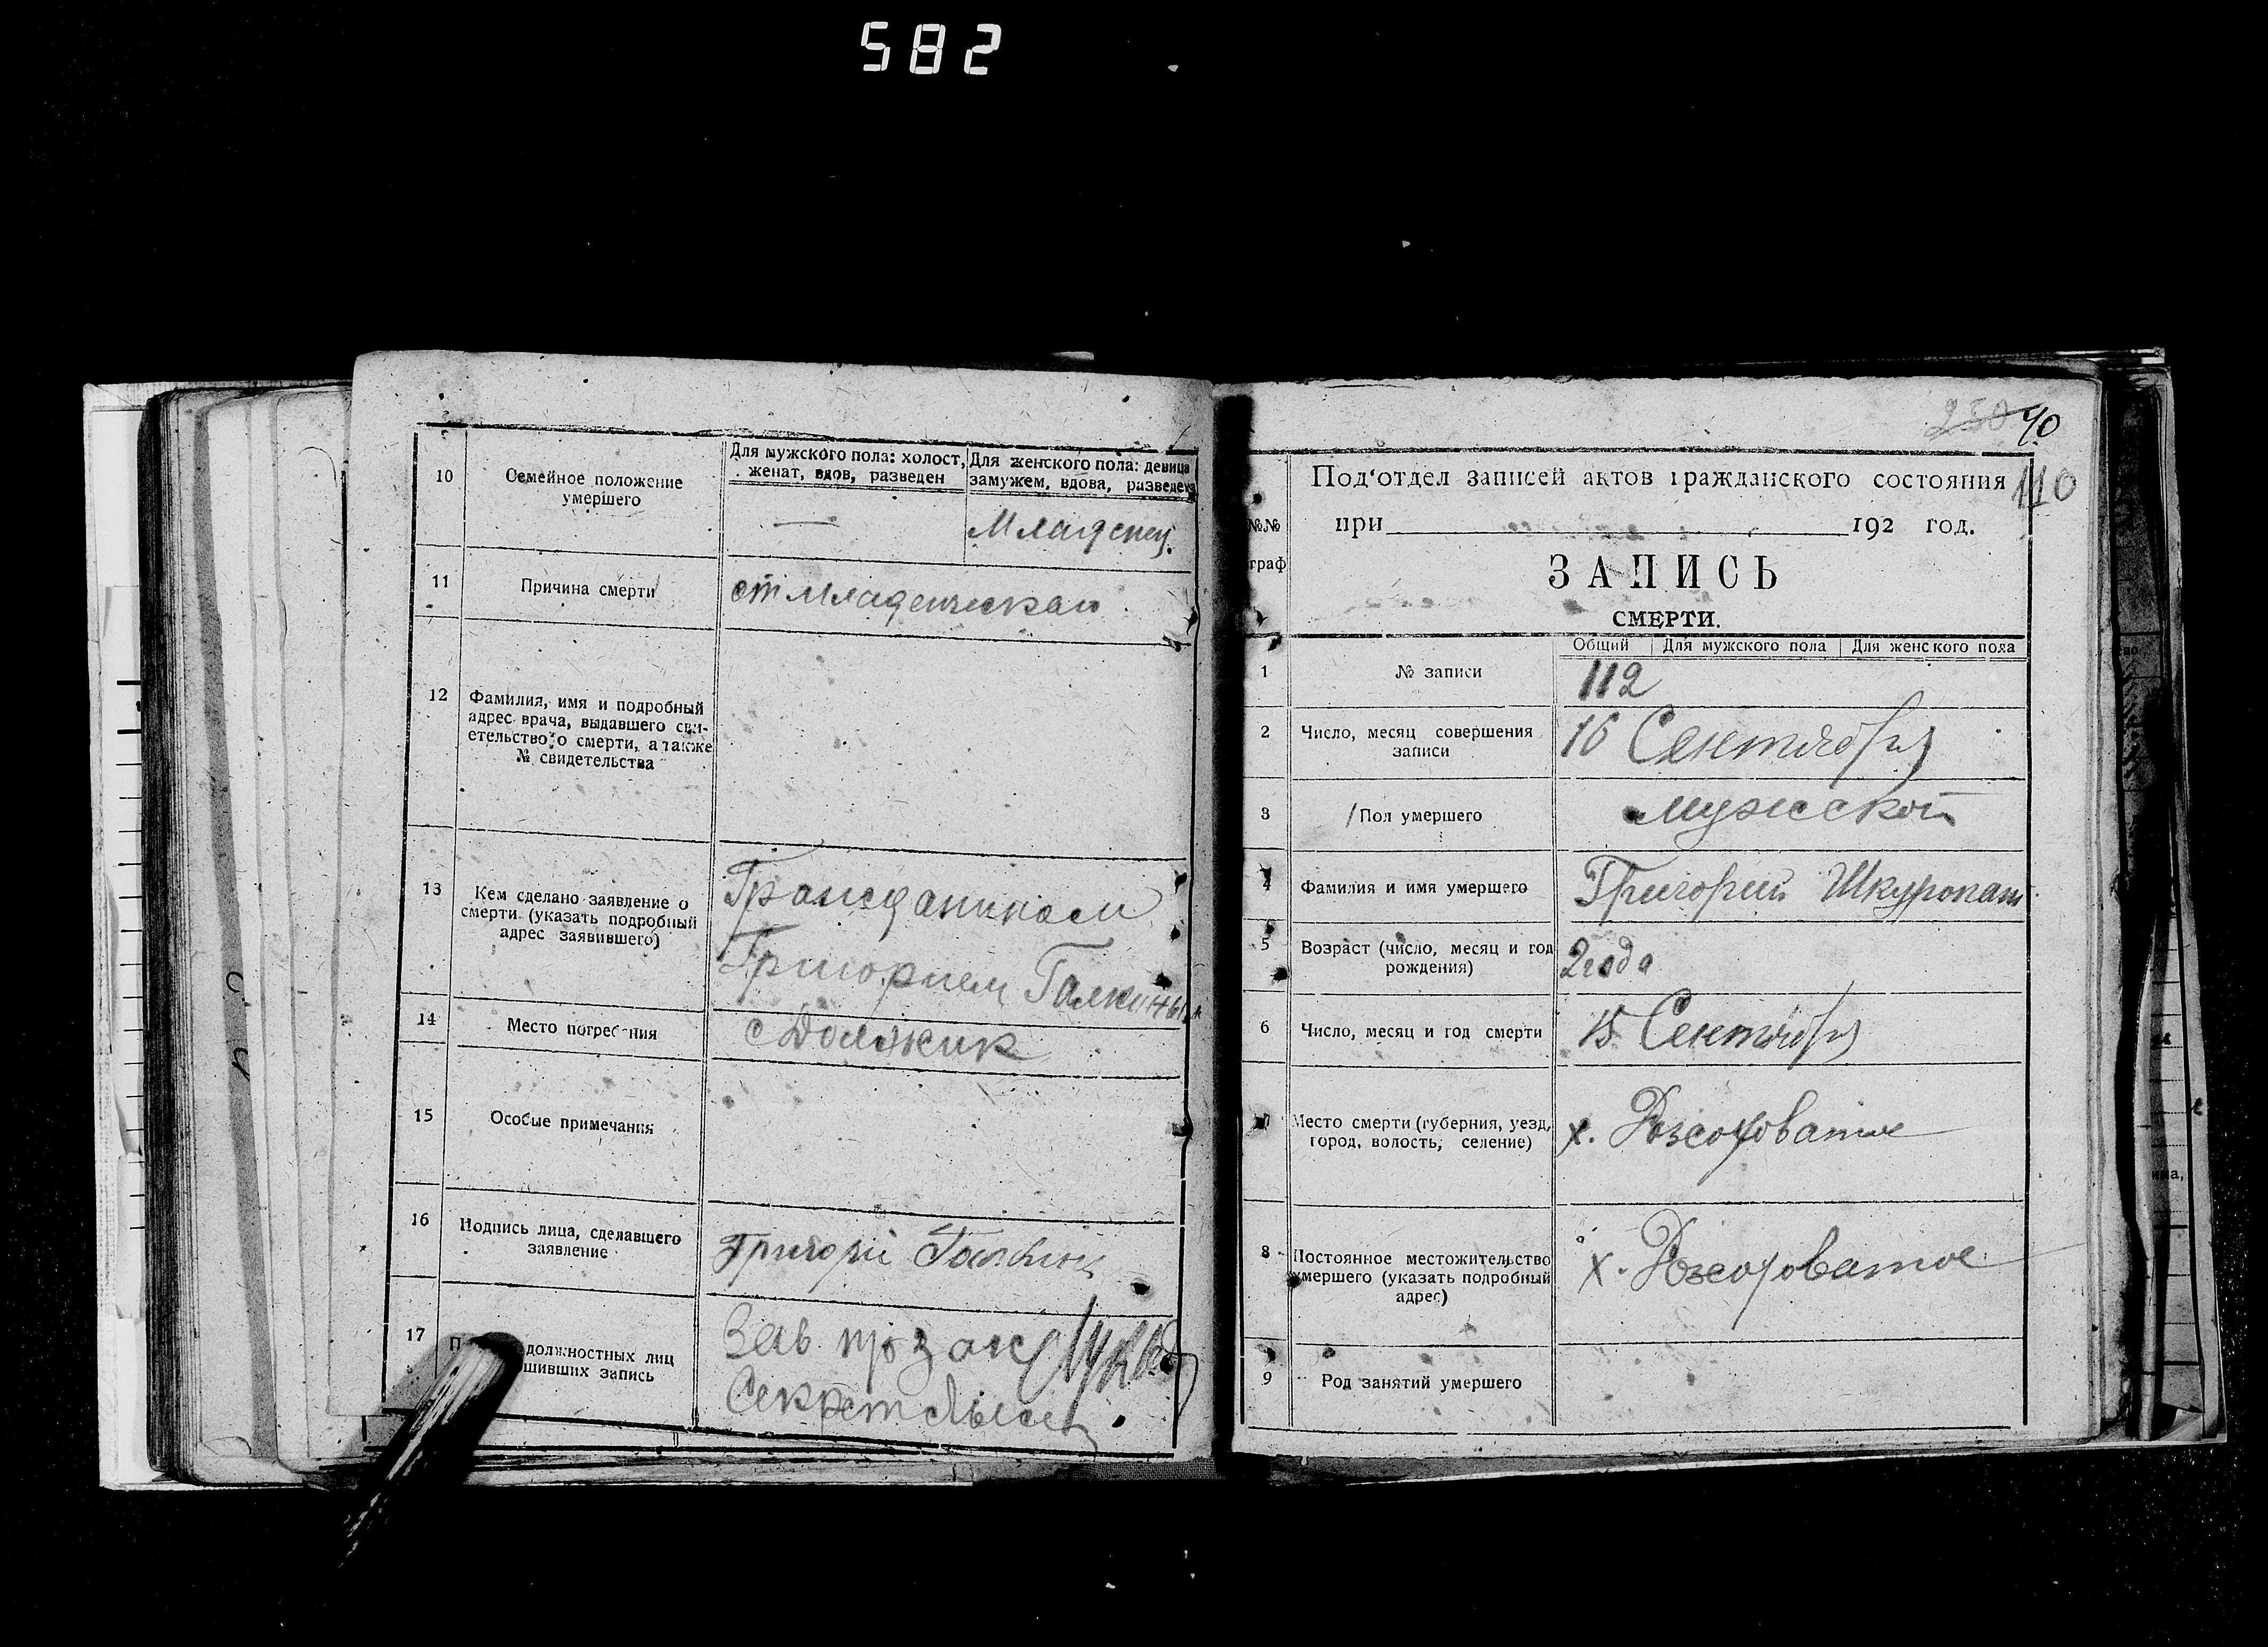 582
10
Семейное положение
умершего
Для мужского пола: холост,
женат, вдов, разведен
Для женского пола: девица
замужем, вдова, разведена
—
Младенец
11
Причина смерти
от Младенческаго
12
Фамилия, имя и подробный
адрес врача, выдавшего сви-
етельство о смерти, а также
№ свидетельства
13
Кем сделано заявление о
смерти (указать подробный
адрес заявившего)
Гражданином
Григорием Галкиным
14
Место погребения
с Должик
15
Особые примечания
16
Подпись лица, сделавшего
заявление
Григорий
17
должностных лиц
шивших запись
Зав
Секрет
250 40
110
№№
граф
Под'отдел записей актов гражданского состояния
при 192 год.
ЗАПИСЬ
СМЕРТИ.
Общий Для мужского пола Для женского пола
1
№ записи
112
2
Число, месяц совершения
записи
16 Сентября
3
Пол умершего
мужской
4
Фамилия и имя умершего
Григорий Шкуропат
5
Возраст (число, месяц и год
рождения)
2 года
6
Число, месяц и год смерти
15 Сентября
7
Место смерти (губерния, уезд,
город, волость, селение)
х.
8
Постоянное местожительство
умершего (указать подробный
адрес)
х.
9
Род занятий умершего